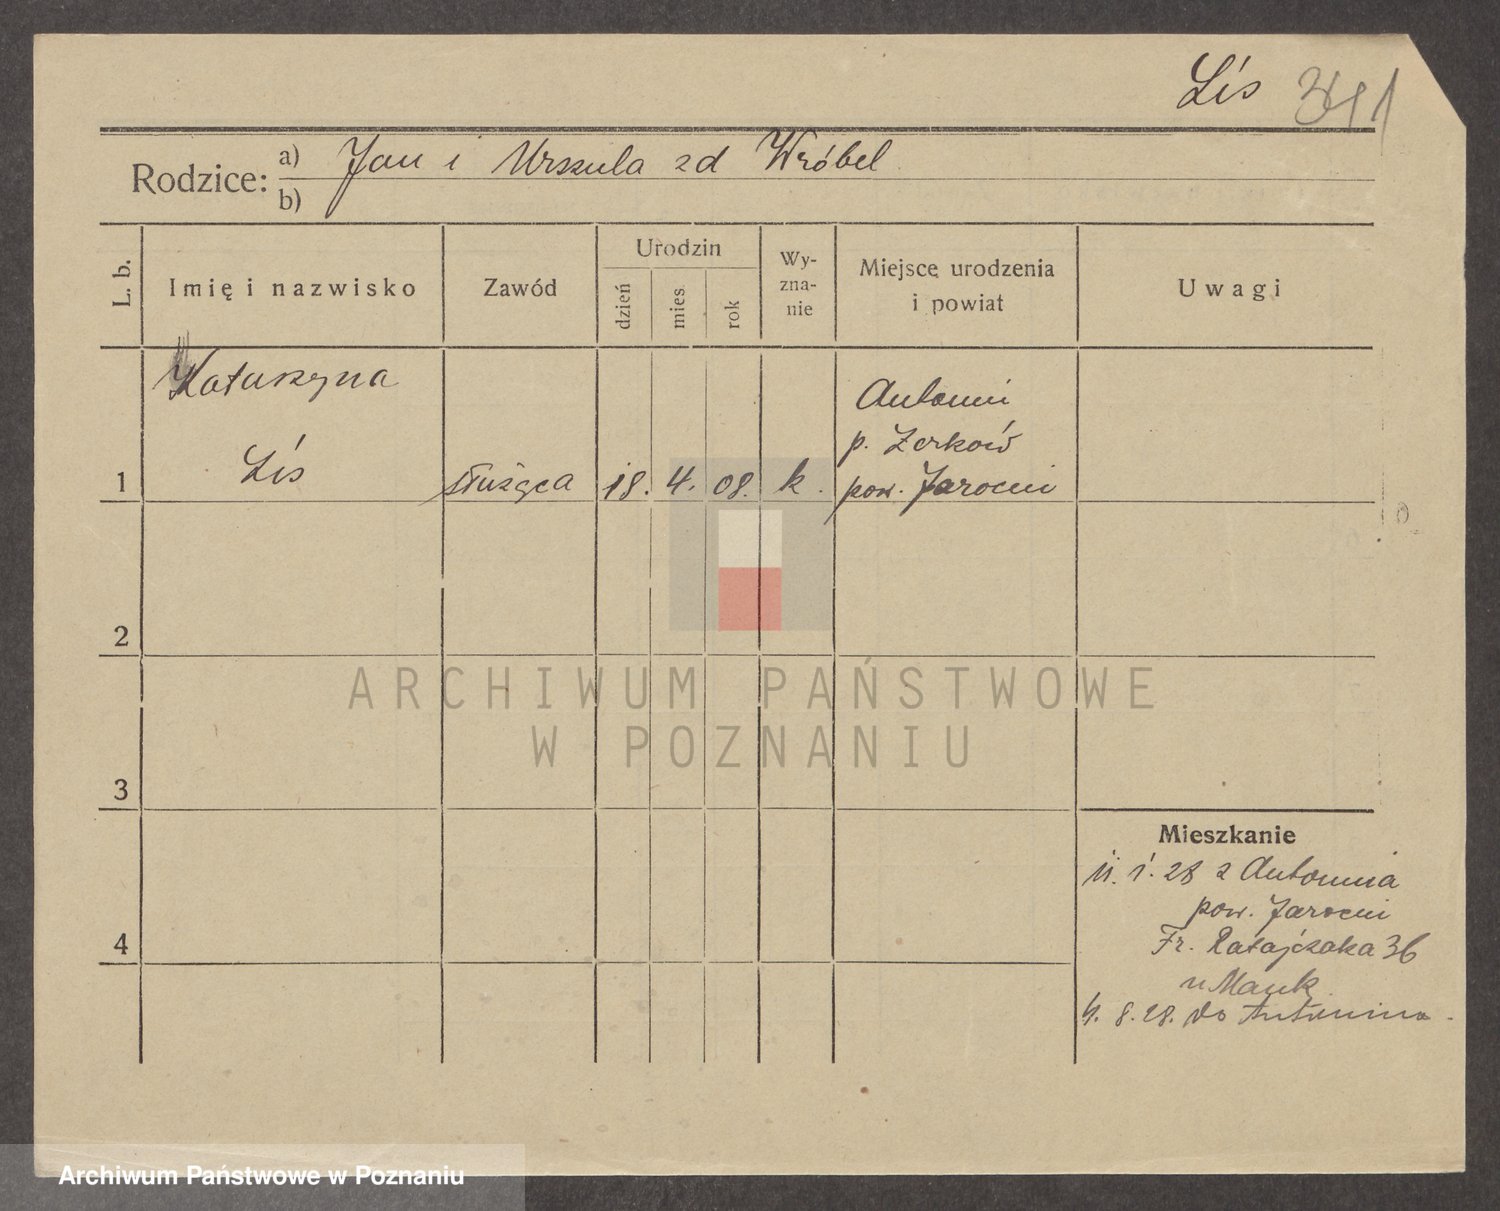 Lis 341
Rodzice: a) Jan i Urszula zd Wróbel
b)
L. b. Imię i nazwisko Zawód Urodzin dzień mies rok Wy-zna-nie Miejsce urodzenia i powiat Uwagi
Katarzyna
Lis
Antonin
p. Żerków
1 służąca 18. 4. 08. k. pow. Jarocin
2
3
4
Mieszkanie
11. 1. 28 z Antonina
pow. Jarocin
Fr. Ratajczaka 36
u
8. 28. do Antonina.
ARCHIWUM PAŃSTWOWE
W POZNANIU
Archiwum Państwowe w Poznaniu